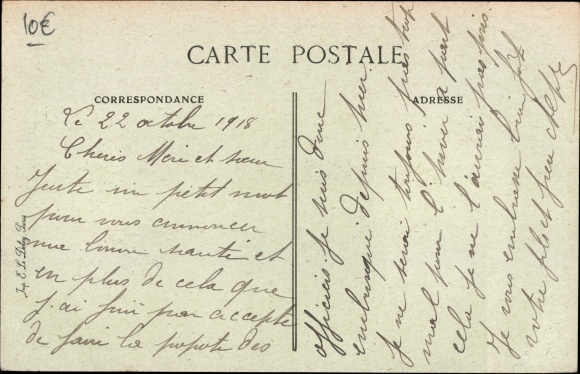 10€
CARTE POSTALE
CORRESPONDANCE
ADRESSE
Le 22 octobre 1918
Cheris Mère et sœur
Juste un petit mot
pour vous annoncer
ma bonne santé et
en plus de cela que
j'ai fini par accepté
de faire la popote des
officiers je suis donc
embusqué depuis hier
je ne serai toujours pas trop
mal pour l'hiver a part
cela je ne l'aurai pas pris
Je vous embrasse bien fort
votre fils et frère
Imp. E. Le Deley, Paris